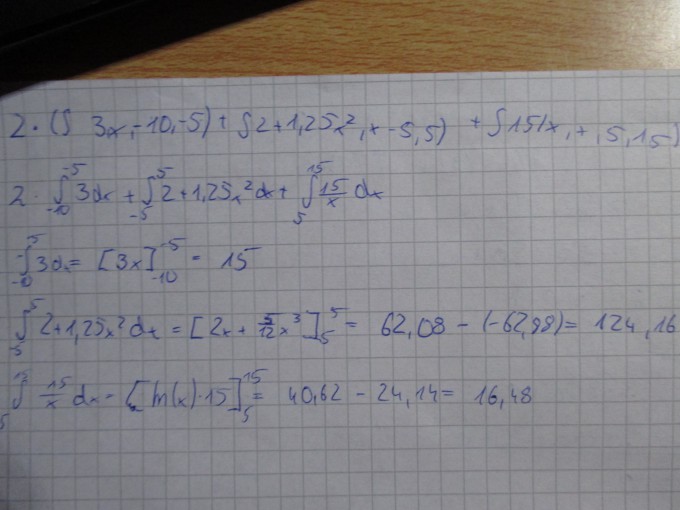 2 · (∫ 3x, -10, -5) + ∫ 2 + 1,25x², x - 5, 5) + ∫ 15/x, x, 5, 15)
2 · ∫₋₁₀⁻⁵ 3dx + ∫₋₅⁵ 2 + 1,25x² dx + ∫₅¹⁵ 15/x dx
∫₋₁₀⁻⁵ 3dx = [3x]₋₁₀⁻⁵ = 15
∫₋₅⁵ 2 + 1,25x² dx = [2x + 5/12 x³]₋₅⁵ = 62,08 - (-62,98) = 124,16
∫₅¹⁵ 15/x dx = [ln(x) · 15]₅¹⁵ = 40,62 - 24,14 = 16,48